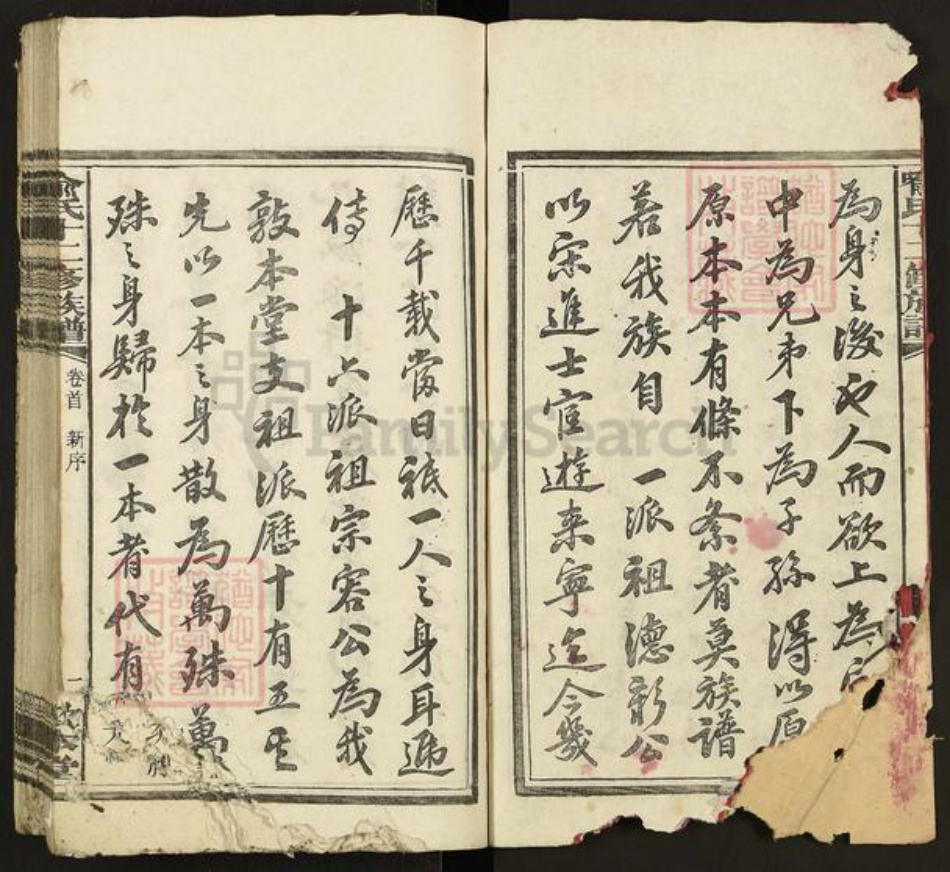 為身之後也人而欲上為
中為兄弟下為子孫得以原
原本本有條不紊者莫族譜
若我族自 一派祖德彰公
以宋進士宦遊來寧迄今幾
歷千載當日祇一人之身耳遞
傳 十六派祖宗容公為我
敦本堂支祖派歷十有五
先以一本之身散為萬殊萬
殊之身歸於一本者代有
俞氏十二修族譜 卷首 新序 一 敦本堂
FamilySearch